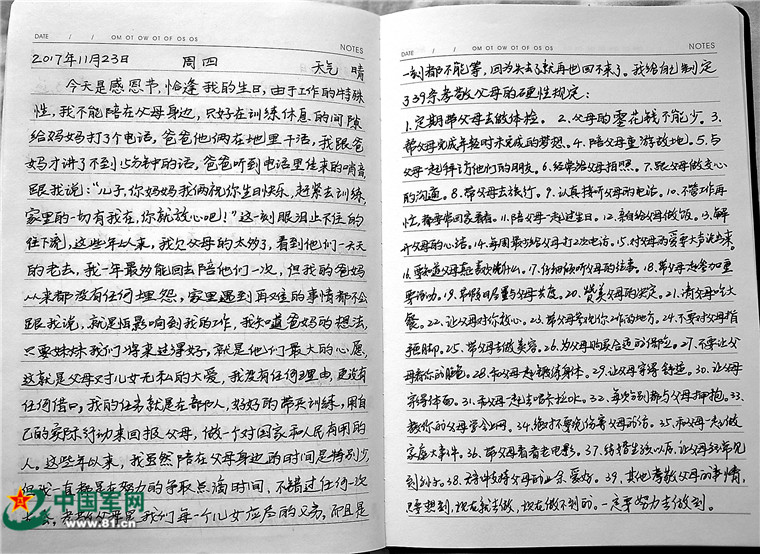 DATE / / OM OT OW OT OF OS OS NOTES
2017年11月23日 周四 天气 晴
今天是感恩节,恰逢我的生日,由于工作的特殊
性,我不能陪在父母身边,只好在训练休息的间隙
给妈妈打了个电话,爸爸他俩在地里干活,我跟爸
妈才讲了不到15分钟的话,爸爸听到电话里传来的哨音
跟我说:“儿子,你妈妈我俩祝你生日快乐,赶紧去训练,
家里的一切有我在,你就放心吧!”这一刻眼泪止不住的
往下流,这些年以来,我欠父母的太多了,看到他们一天天
的老去,我一年最多能回去陪他们一次,但我的爸妈
从来都没有任何埋怨,家里遇到再难的事情都不会
跟我说,就是怕影响到我的工作,我知道爸妈的想法,
只要妹妹我们将来过得好,就是他们最大的心愿,
这就是父母对儿女无私的大爱,我没有任何理由,更没有
任何借口,我的任务就是在部队,好好的带兵训练,用自
己的实际行动来回报父母,做一个对国家和人民有用的
人。这些年以来,我虽然陪在父母身边的时间是特别少
但我一直都是在努力的争取点滴时间,不错过任何一次
孝敬父母是我们每一个儿女应尽的义务,而且是
中国军网
www.81.cn
DATE / / OM OT OW OT OF OS OS NOTES
一刻都不能等,因为失去了就再也回不来了。我给自己制定
了39条孝敬父母的硬性规定:
1.定期带父母去做体检。2.父母的零花钱不能少。3.
帮父母完成年轻时未完成的梦想。4.陪父母重游故地。5.与
父母一起拜访他们的朋友。6.经常给父母拍照。7.跟父母做交心
的沟通。8.带父母去旅行。9.认真接听父母的电话。10.不管工作再
忙,都要常回家看看。11.陪父母一起过生日。12.亲自给父母做饭。13.解
开父母的心结。14.每周最少给父母打2次电话。15.对父母的爱要大声说出来。
16.要知道父母喜欢吃什么。17.仔细倾听父母的往事。18.带父母一起参加重
要活动。19.节假日尽量与父母共度。20.赞美父母的决定。21.请父母吃大
餐。22.让父母对你放心。23.带父母参观你工作的地方。24.不要对父母指
手画脚。25.带父母去做美容。26.为父母购买合适的保险。27.不要让父
母看你的脸色。28.和父母一起锻炼身体。29.让父母穿得舒适。30.让父母
穿得体面。31.和父母一起去唱卡拉OK。32.每次告别都与父母拥抱。33.
教你的父母学会上网。34.绝对不要说伤害父母的话。35.和父母一起做
家庭大事件。36.带父母看看老电影。37.结婚生孩以后,让父母经常见
到孙子。38.支持父母的业余爱好。39.其他孝敬父母的事情,
只要想到,现在就去做,现在做不到的。一定要努力去做到。